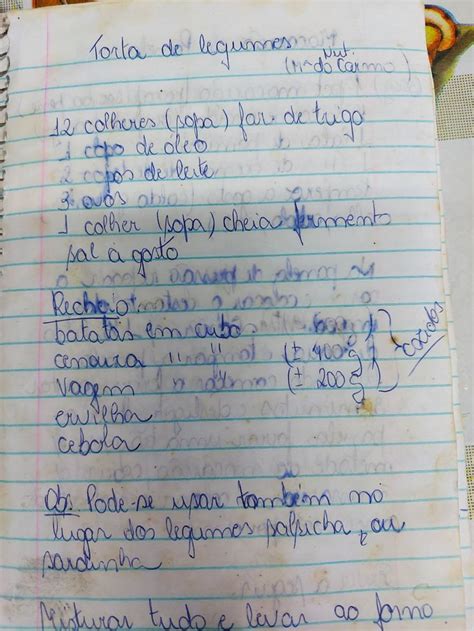 Torta de legumes
Nut.
(Mª do Carmo)
12 colheres (sopa) far. de trigo
1 copo de óleo
2 copos de leite
3 ovos
1 colher (sopa) cheia fermento
sal à gosto
Recheio
batatas em cubo
cenoura " " (± 400g)
vagem (± 200g)
cozidos
ervilha
cebola
Obs: Pode-se usar também no
lugar dos legumes salsicha, ou
sardinha
Misturar tudo e levar ao forno